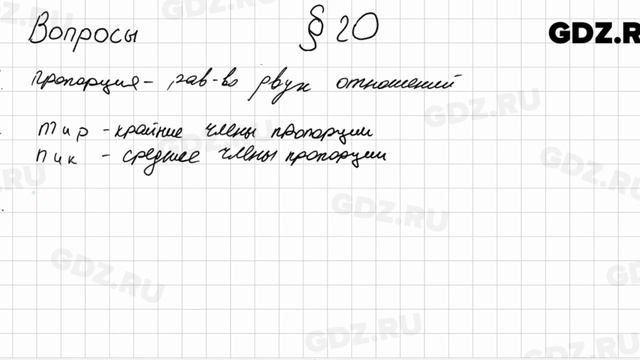 Вопросы § 20
GDZ.RU
пропорция - рав-во двух отношений
m и p - крайние члены пропорции
n и k - средние члены пропорции
GDZ.RU
GDZ.RU
GDZ.RU
GDZ.RU
GDZ.RU
GDZ.RU
GDZ.RU